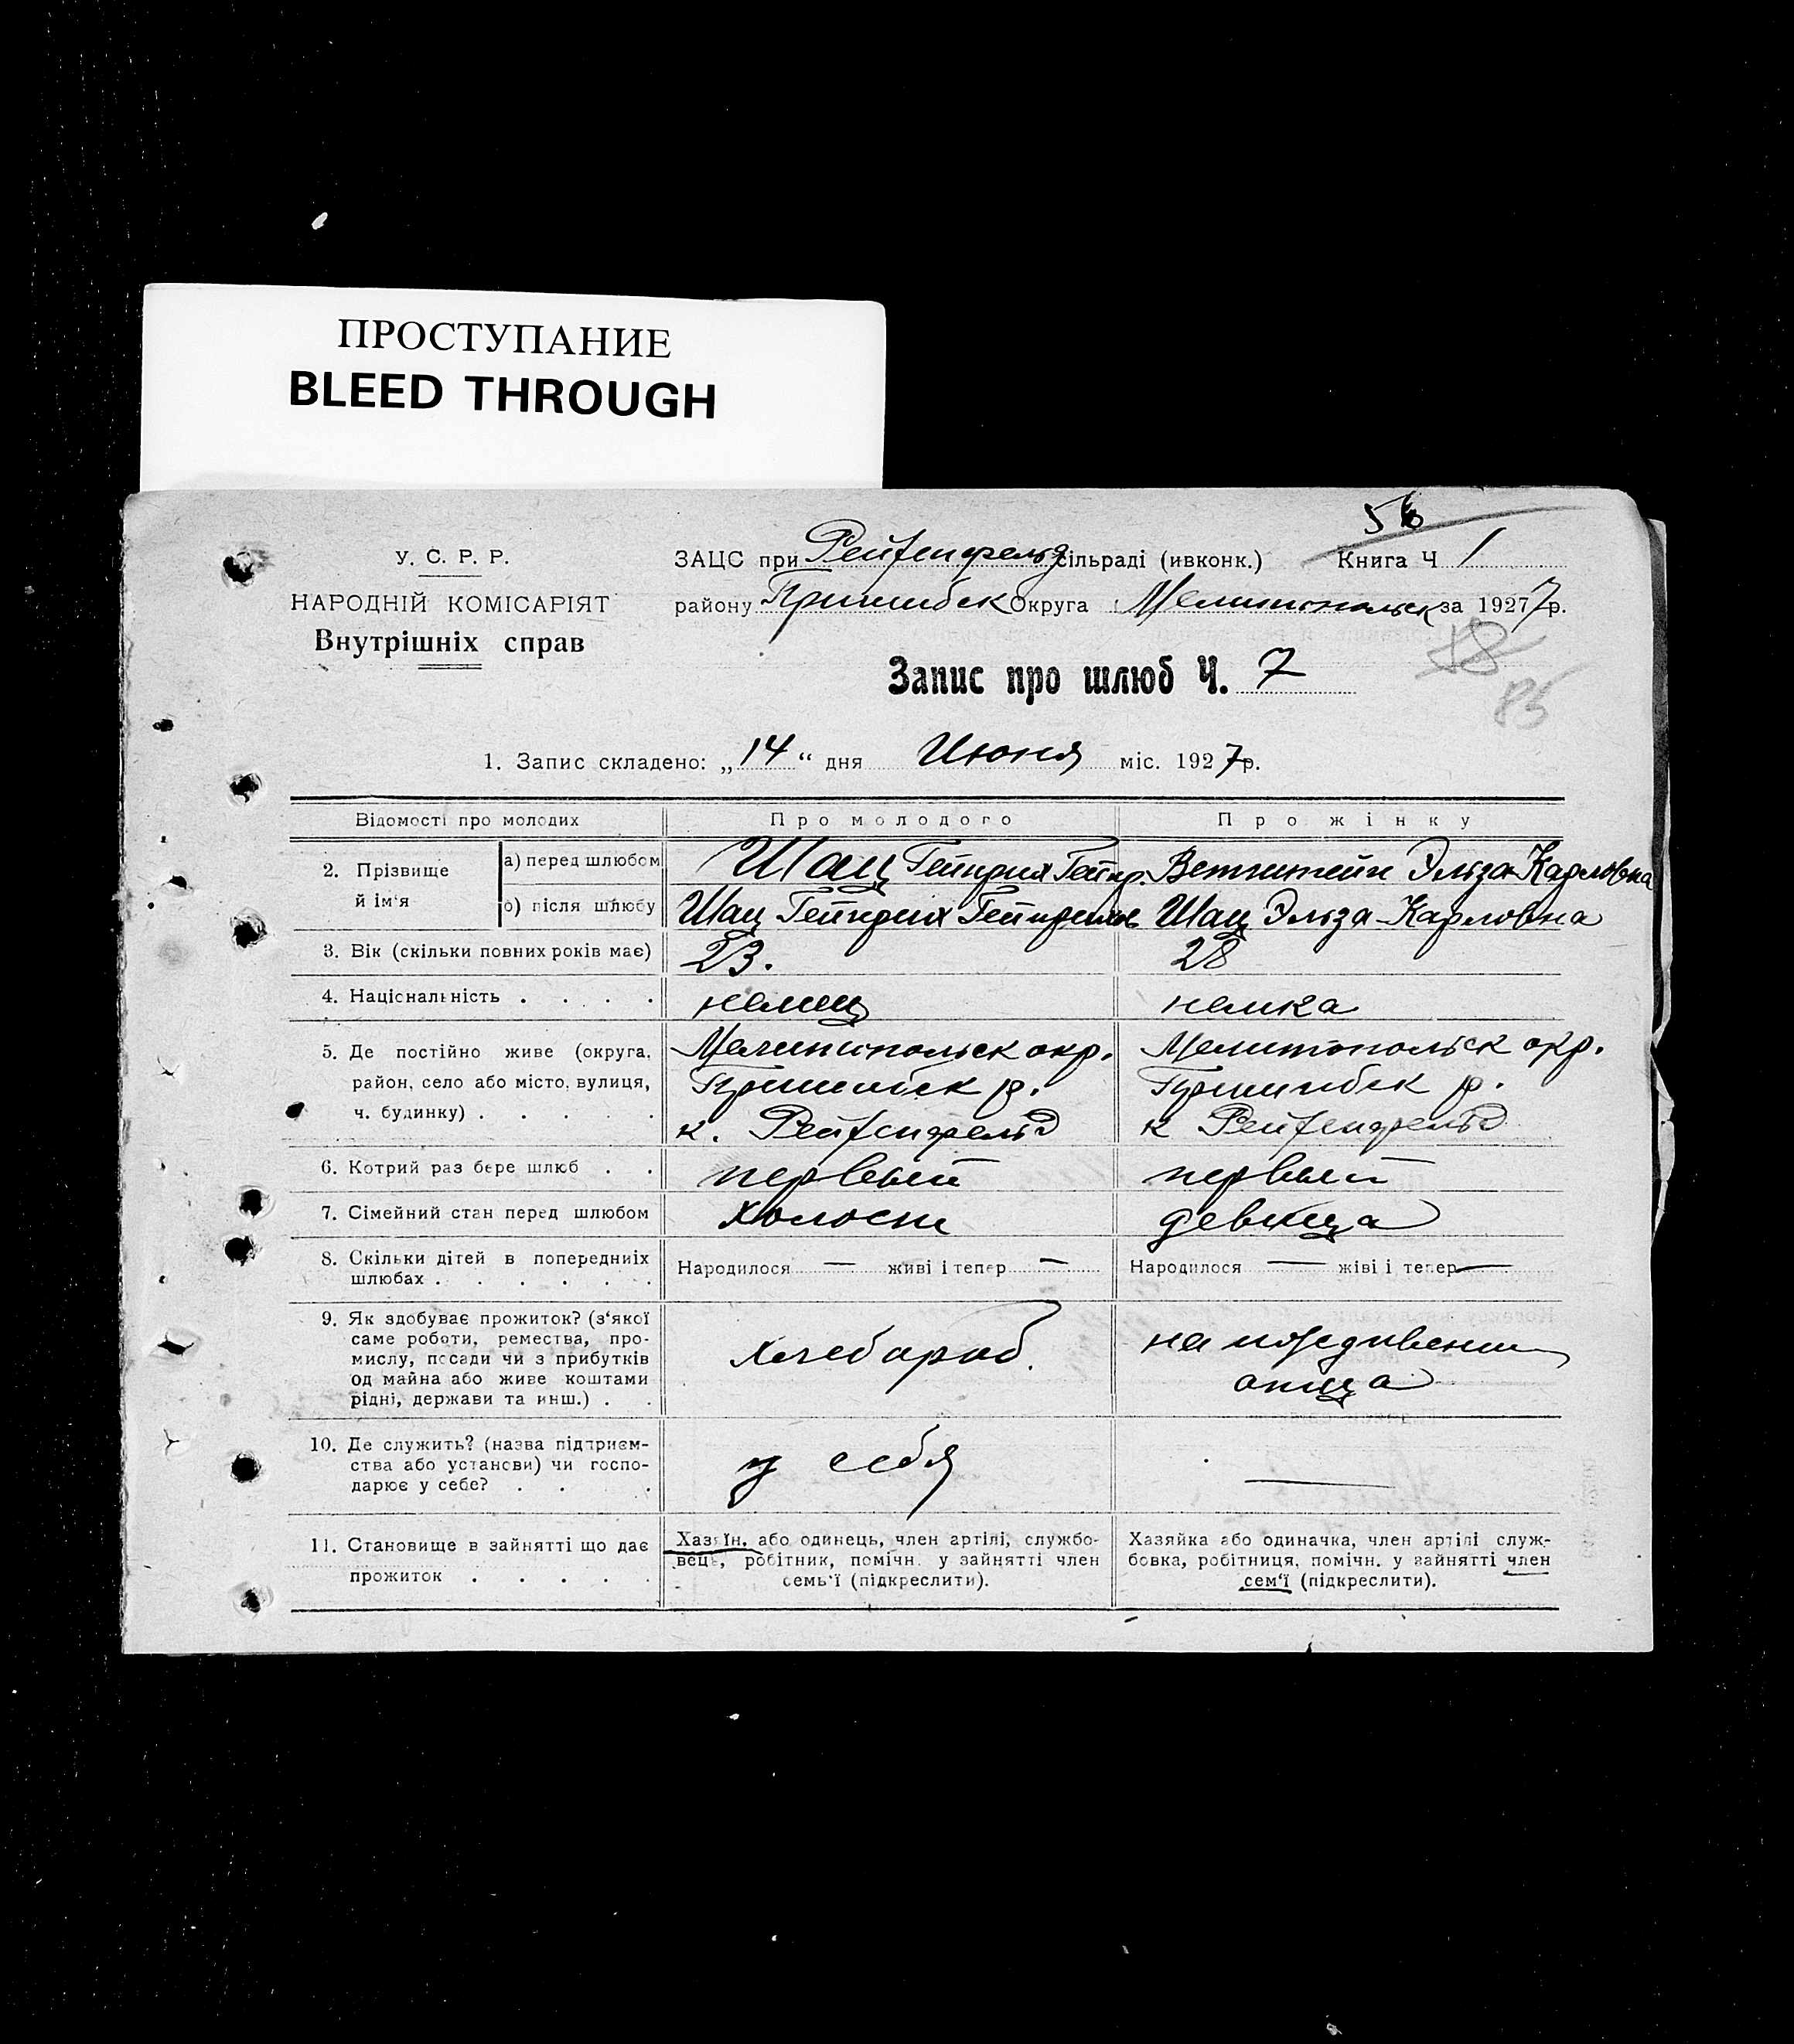 ПРОСТУПАНИЕ
BLEED THROUGH
56
У. С. Р. Р.
НАРОДНІЙ КОМІСАРІЯТ
Внутрішніх справ
ЗАЦС при Рейхенфельд сільраді (ивконк.) Книга Ч 1
району Пришибск Округа Мелитопольск за 1927 7 р.
18
85
Запис про шлюб Ч. 7
1. Запис складено: „14“ дня Июня міс. 1927 р.
Відомості про молодих
Про молодого
Про жінку
2. Прізвище й ім'я
а) перед шлюбом
Шац Гейнрих Гейнр.
Ветштейн Эльза Карловна
б) після шлюбу
Шац Гейнрих Гейнрихов
Шац Эльза Карловна
3. Вік (скільки повних років має)
23.
28
4. Національність . . . .
немец
немка
5. Де постійно живе (округа,
район, село або місто, вулиця,
ч. будинку) . . . . .
Мелитопольск окр.
Пришибск р.
к. Рейхенфельд
Мелитопольск окр.
Пришибск р.
к Рейхенфельд
6. Котрий раз бере шлюб . .
первый
первый
7. Сімейний стан перед шлюбом
холост
девица
8. Скільки дітей в попередніїх
шлюбах . . . . . .
Народилося — живі і тепер —
Народилося — жіві і тепер —
9. Як здобуває прожиток? (з'якої
саме роботи, ремества, про-
мислу, посади чи з прибутків
од майна або живе коштами
рідні, держави та инш.) . .
хлебороб.
на иждивении
отца
10. Де служить? (назва підприєм-
ства або установи) чи госпо-
дарює у себе? . . .
у себя
—
11. Становище в зайнятті що дає
прожиток . . . . .
Хазяїн, або одинець, член артілі, службо-
вець, робітник, помічн. у зайнятті член
семь'ї (підкреслити).
Хазяйка або одиначка, член артілі служ-
бовка, робітниця, помічн. у зайнятті член
сем'ї (підкреслити).